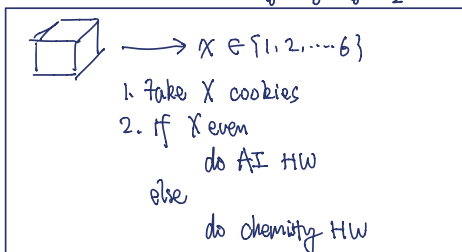 X ∈ {1, 2, ..... 6}
1. Take X cookies
2. If X even
do AI HW
else
do chemisty HW